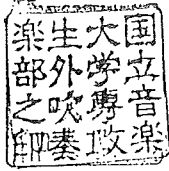 国立音楽
大学專攻
生外吹奏
楽部之印